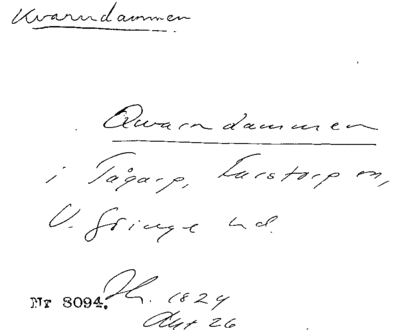 Kvarndammen
Qvarndammen
i Tågarp, Farstorp sn,
V. Göinge hd.
Nr 8094. Jh. 1824
Akt 26